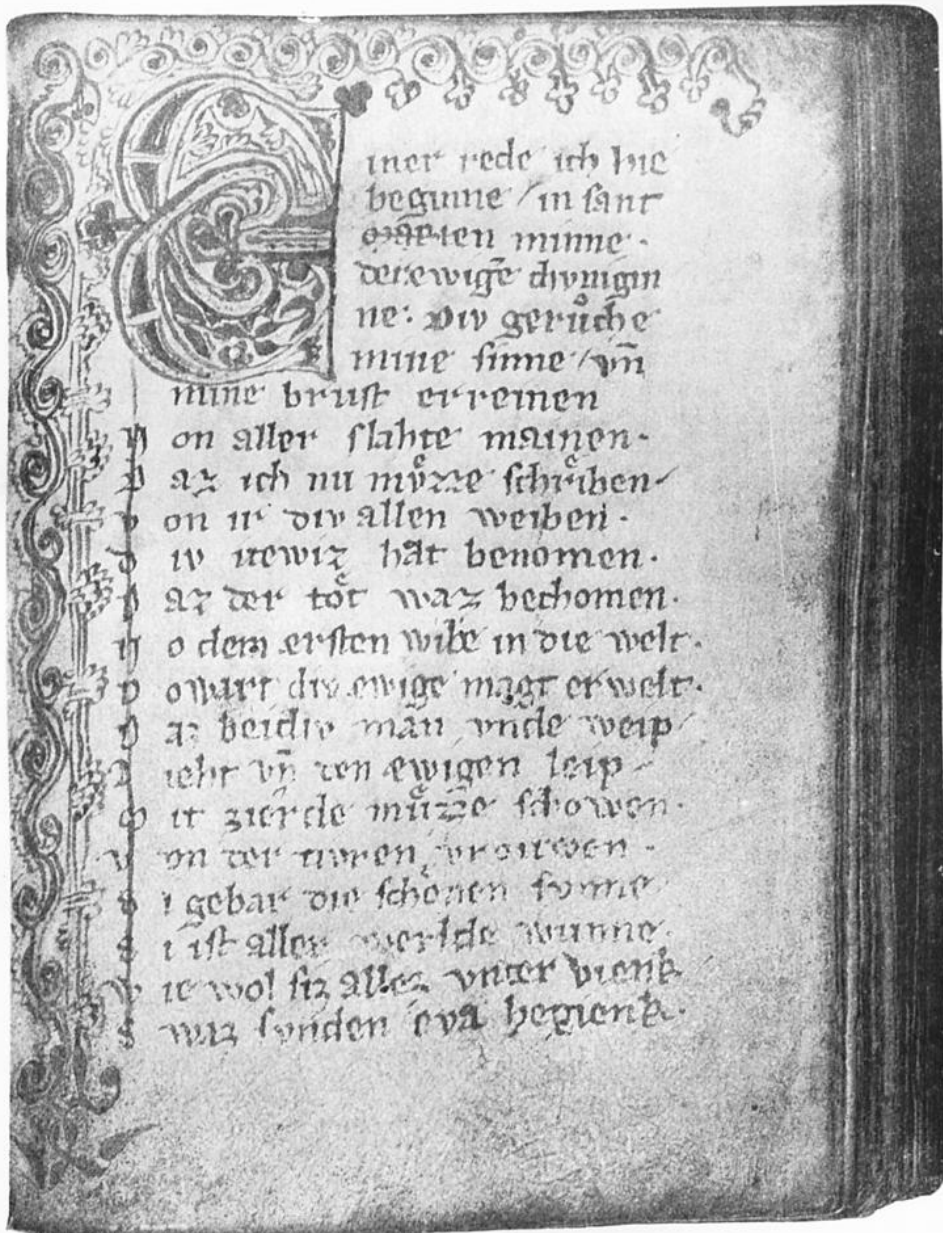 Einer rede ich hie
beginne / in sant
marien minne ·
der ewigē chvnigin
ne · Div gerůche
mine sinne / vn̄
mine brust erreinen
Von aller slahte mainen ·
Daz ich nu mvͦzze schrîben ·
Von ir div allen weiben ·
Div itewiz hat benomen ·
Daz der tot waz bechomen ·
Vo dem ersten wibe in die welt ·
Do wart div ewige magt erwelt ·
Daz beidiv man vnde weip
Lieht vn̄ den ewigen leip
Mit zierde mvͤzze schowen ·
Von der tivren vrouwen ·
Si gebar die schönen svnne
Si ist aller werlde wunne ·
Wie wol siz allez vnter vienk
Swaz svnden eva begienk ·